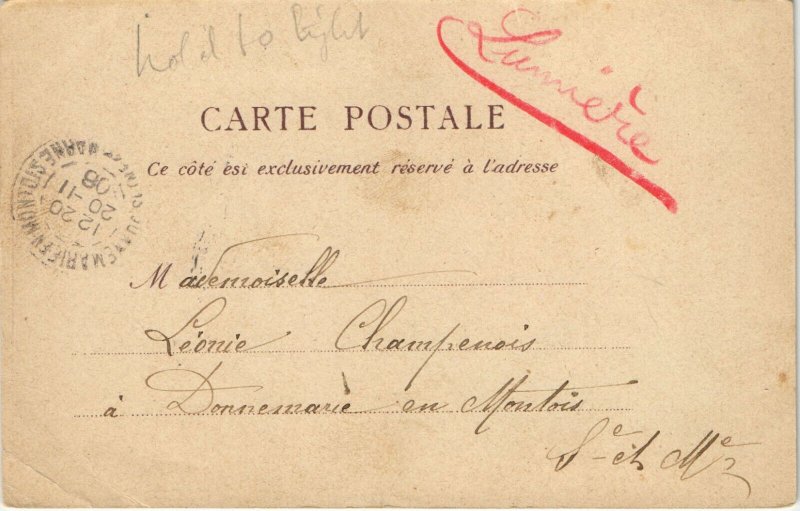 hold to light
Lumière
CARTE POSTALE
Ce côté est exclusivement réservé à l'adresse
DONNEMARIE EN MONTOIS
SEINE ET MARNE
12 20
20 -11
08
Mademoiselle
Léonie Champenois
à Donnemarie en Montois
Se et Me